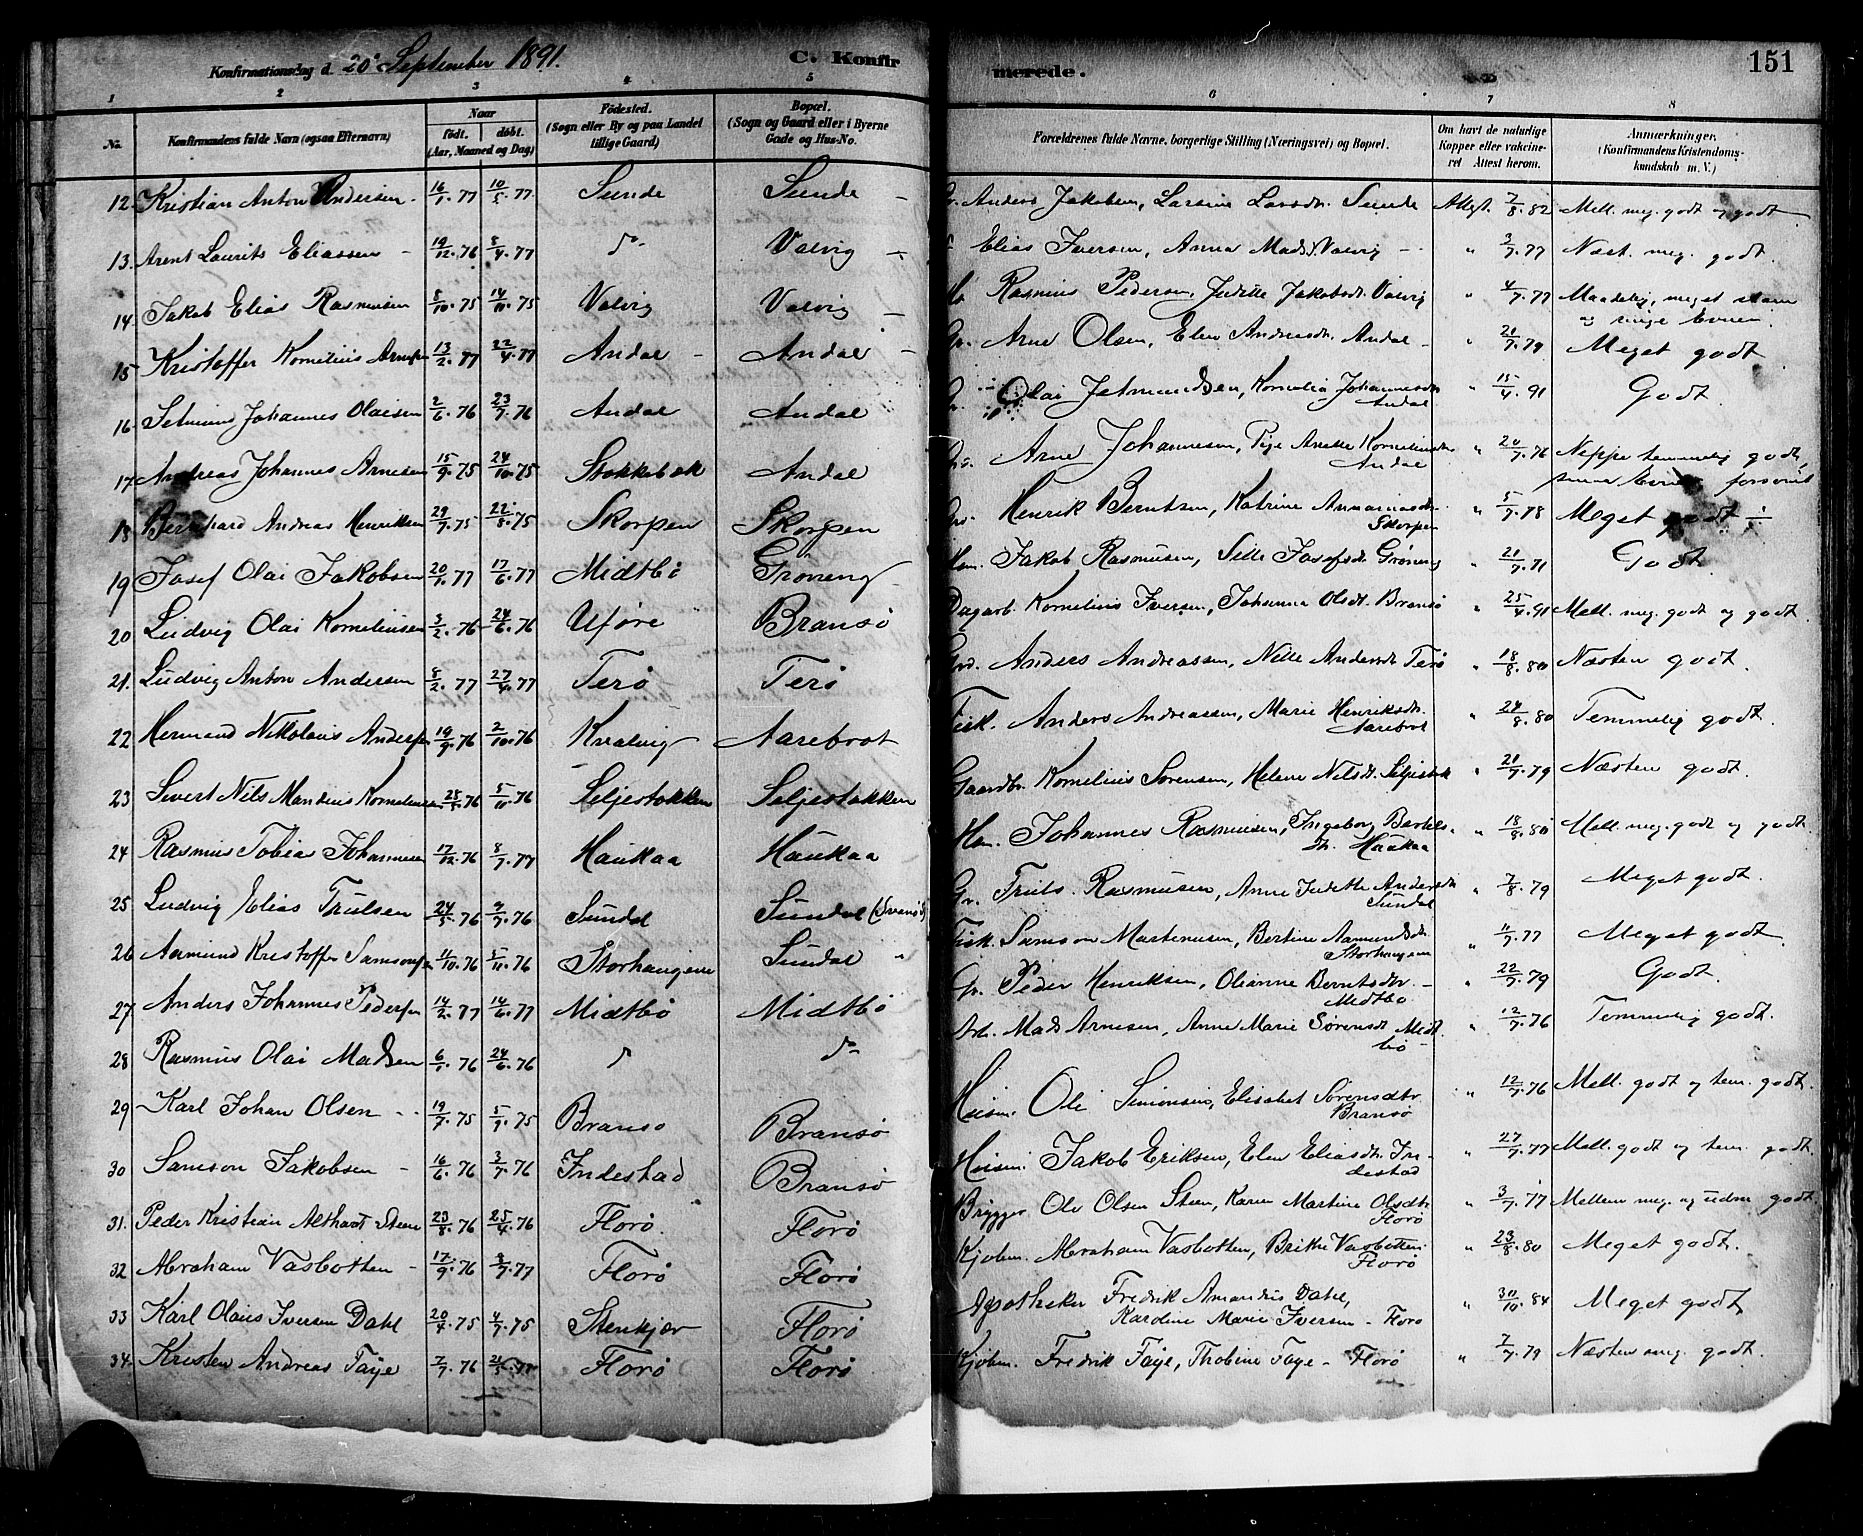 Konfirmationsdag d. 20de September 1891. C. Konfirmerede. 151
1 2 3 4 5 6 7 8
No. Konfirmandens fulde Navn (ogsaa Efternavn) Naar født. døbt. (Aar, Maaned og Dag) Födested. (Sogn eller By og paa Landet tillige Gaard) Bopæl. (Sogn og Gaard eller i Byerne Gade og Hus-No. Forældrenes fulde Navne, borgerlige Stilling (Næringsvei) og Bopæl. Om havt de naturlige Kopper eller vakcineret Attest herom. Anmærkninger. (Konfirmandens Kristendomskundskab m. V.)
12. Kristian Anton Andersen 16/1.77 10/5.77 Sunde Sunde Gr. Anders Jakobsen, Larsine Larsdt. Sunde Attest. 7/8.82 Mell. meg. godt og godt
13. Arent Laurits Eliassen 19/12.76 8/4.77 do Valvig Elias Iversen, Anna Madsd. Valvig " 3/7.77 Næst. meg. godt.
14. Jakob Elias Rasmusen 8/10.75 14/10.75 Valvig Valvig Rasmus Pedersen, Judithe Jakobsdt. Valvig " 4/7.77 Maadelig, meget
og ringe Evner.
15 Kristoffer Kornelius Arnesen 13/2.77 22/4.77 Andal Andal Gr. Arne Olsen, Elen Andreasdt. Andal " 21/7.79 Meget godt
16. Johannes Olaisen 2/6.76 23/7.76 Andal Andal Gr. Olai Jetmundsen, Kornelia Johannesdt.
Andal " 15/4.91 Godt.
17. Andreas Johannes Arnesen 15/9.75 24/10.75 Stokkebæk Andal Gr. Arne Johannesen, Anette Korneliusdt.
Andal " 20/7.76 Neppe temmelig godt,
Evner
18 Bernhard Andreas Henriksen 29/7.75 22/8.75 Skorpen Skorpen Henrik Berntsen, Katrine
Skorpen " 5/7.78 Meget godt
19 Josef Olai Jakobsen 20/1.77 17/6.77 Midtbö Gröneng Hm. Jakob Rasmusen, Sille Josefsdt. Gröneng " 21/7.71 Godt.
20 Ludvig Olai Korneliusen 3/2.76 24/6.76 Uföre Bransö Dagarb. Kornelius Iversen, Johanna Olsdt. Bransö " 25/4.91 Mell. meg. godt og godt.
21. Ludvig Anton Andersen 8/2.77 27/4.77 Terö Terö Grd. Anders Andreassen, Nille Andersdt. Terö " 18/8.80 Næsten godt.
22 Hermand Nikolaus Andersen 19/9.76 2/10.76 Kvalvig Aarebrot Fisk. Anders Andreassen, Marie Henriksdt.
Aarebrot " 24/8.80 Temmelig godt.
23 Sivert Nils Mandius Korneliusen 25/8.76 5/10.76 Seljestokken Seljestokken Gaardbr. Kornelius Sörensen, Helene Nilsdt. Seljestok " 21/7.79 Næsten godt.
24 Rasmus Tobias Johannesen 17/12.76 8/7.77 Haukaa Haukaa Hm. Johannes Rasmusen, Ingeborg Bertels-
dt. Haukaa " 18/8.80 Mell. meg. godt og godt.
25 Ludvig Elias Trulsen 24/5.76 2/7.76 Sundal Sundal (Svanö) Gr. Truls Rasmusen, Anne Judithe Andersdt
Sundal " 7/8.79 Meget godt.
26 Aamund Kristoffer Samsonsen 11/10.76 5/11.76 Storhaugene Sundal " Fisk. Samson Martinusen, Bertine Aamundsdt.
Storhaugene " 11/7.77 Meget godt.
27 Anders Johannes Pedersen 14/2.77 14/6.77 Midtbö Midtbö Gr. Peder Henriksen, Olianne Berntsdtr.
Midtbö " 22/7.79 Godt.
28 Rasmus Olai Madsen 6/1.76 24/6.76 do do Arb. Mads Arnesen, Anne Marie Sörensdt. Midt
bö " 12/7.76 Temmelig godt.
29 Karl Johan Olsen 19/7.75 5/9.75 Bransö Bransö Husm. Ole Simonsen, Elisabet Sörensdtr
Bransö " 12/7.76 Mell. godt og tem. godt.
30 Samson Jakobsen 16/6.76 3/7.76 Indestad Bransö Husm. Jakob Eriksen, Elen Eliasdt. In-
destad " 27/7.77 Mell. godt og tem. godt.
31. Peder Kristian Steen 23/3.76 25/4.76 Florö Florö Brygger Ole Olsen Steen, Karen Martine Olsdtr.
Florö " 3/7.77 Mellem meg. og udm godt.
32 Abraham Vasbotten 17/9.76 8/7.77 Florö Florö Kjöbm. Abraham Vasbotten, Brithe Vasbotten
Florö " 23/8.80 Meget godt.
33 Karl Olaus Iversen Dahl 20/4.75 4/7.75 Stenkjær Florö Apotheker Fredrik Amandus Dahl,
Kardine Marie Iversen - Florö " 30/10.84 Meget godt.
34 Kristen Andreas Faye 7/7.76 Florö Florö Kjöbm. Fredrik Faye, Thobine Faye - Florö " 7/7.79 Næsten meg. godt.